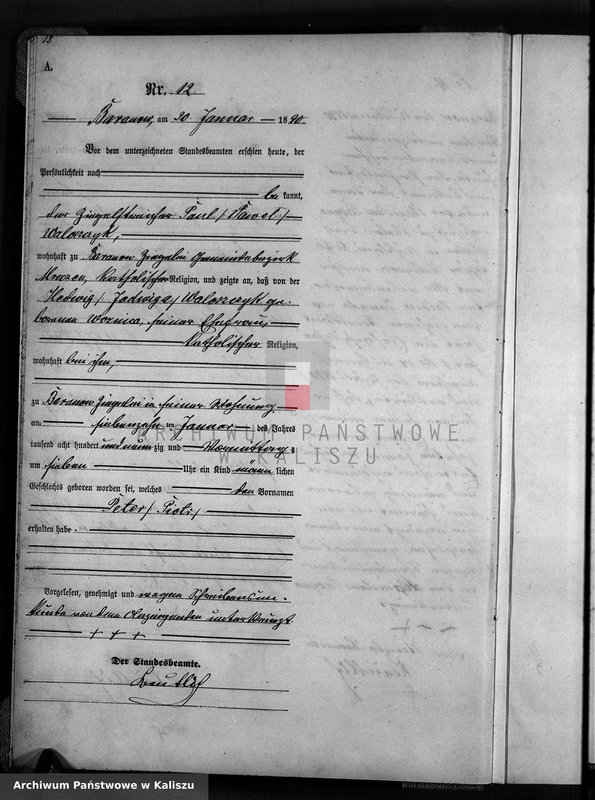 12
A.
Nr. 12
Baranow, am 20 Januar 1890.
Vor dem unterzeichneten Standesbeamten erschien heute, der
Persönlichkeit nach
be kannt,
der Ziegelstreicher Paul / Pawel /
Walaszczyk,
wohnhaft zu Baranow Ziegelei Gemeindebezirk
Mroczen, Katholischer Religion, und zeigte an, daß von der
Hedwig / Jadwiga / Walaszczyk ge-
borenen Woznica, seiner Ehefrau,
Katholischer Religion,
wohnhaft bei ihm,
zu Baranow Ziegelei in seiner Wohnung
am siebenzehn ten Januar des Jahres
tausend acht hundert und neun zig und Vormittags
um sieben Uhr ein Kind männ lichen
Geschlechts geboren worden sei, welches den Vornamen
Peter / Piotr /
erhalten habe.
Vorgelesen, genehmigt und wegen Schreibensun-
kunde von dem Anzeigenden unterkreuzt.
+ + +
Der Standesbeamte.
ARCHIWUM PAŃSTWOWE
W KALISZU
Archiwum Państwowe w Kaliszu